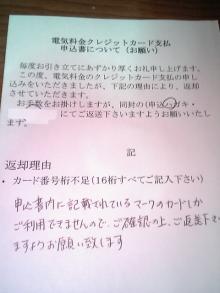 電気料金クレジットカード支払
申込書について(お願い)
毎度お引き立てにあずかり厚くお礼申し上げます。
この度、電気料金のクレジットカード支払の申し
込みをいただきましたが、下記の理由により、返却
させていただきます。
お手数をお掛けしますが、同封の(申込ハガキ・
にてご返送下さいますようお願いいたし
ます。
記
返却理由
・カード番号桁不足(16桁すべてご記入下さい)
申込書内に記載されているマークのカードしか
ご利用できませんので、ご確認の上、ご返送下さい
ますようお願い致します